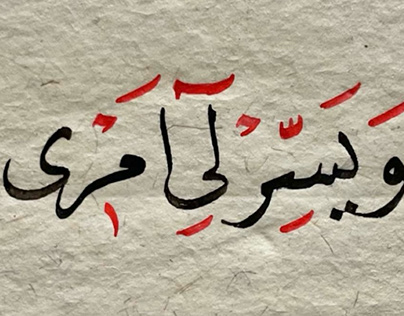 وَيَسِّرْ لِيٓ أَمْرِي